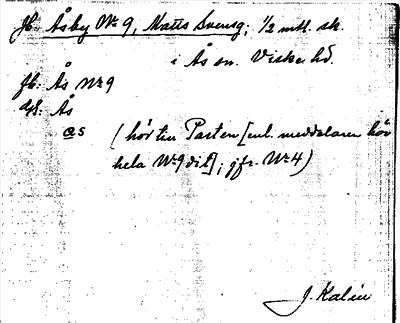 Jb: Åsby No 9, Matts Svensg; 1/2 mtl. sk.
i Ås sn. Viske hd.
Jb: Ås No 9
Ås
as (hör till Parten [enl. meddelaren hör
hela No 9 dit]; jfr. No 4)
J. Kalén